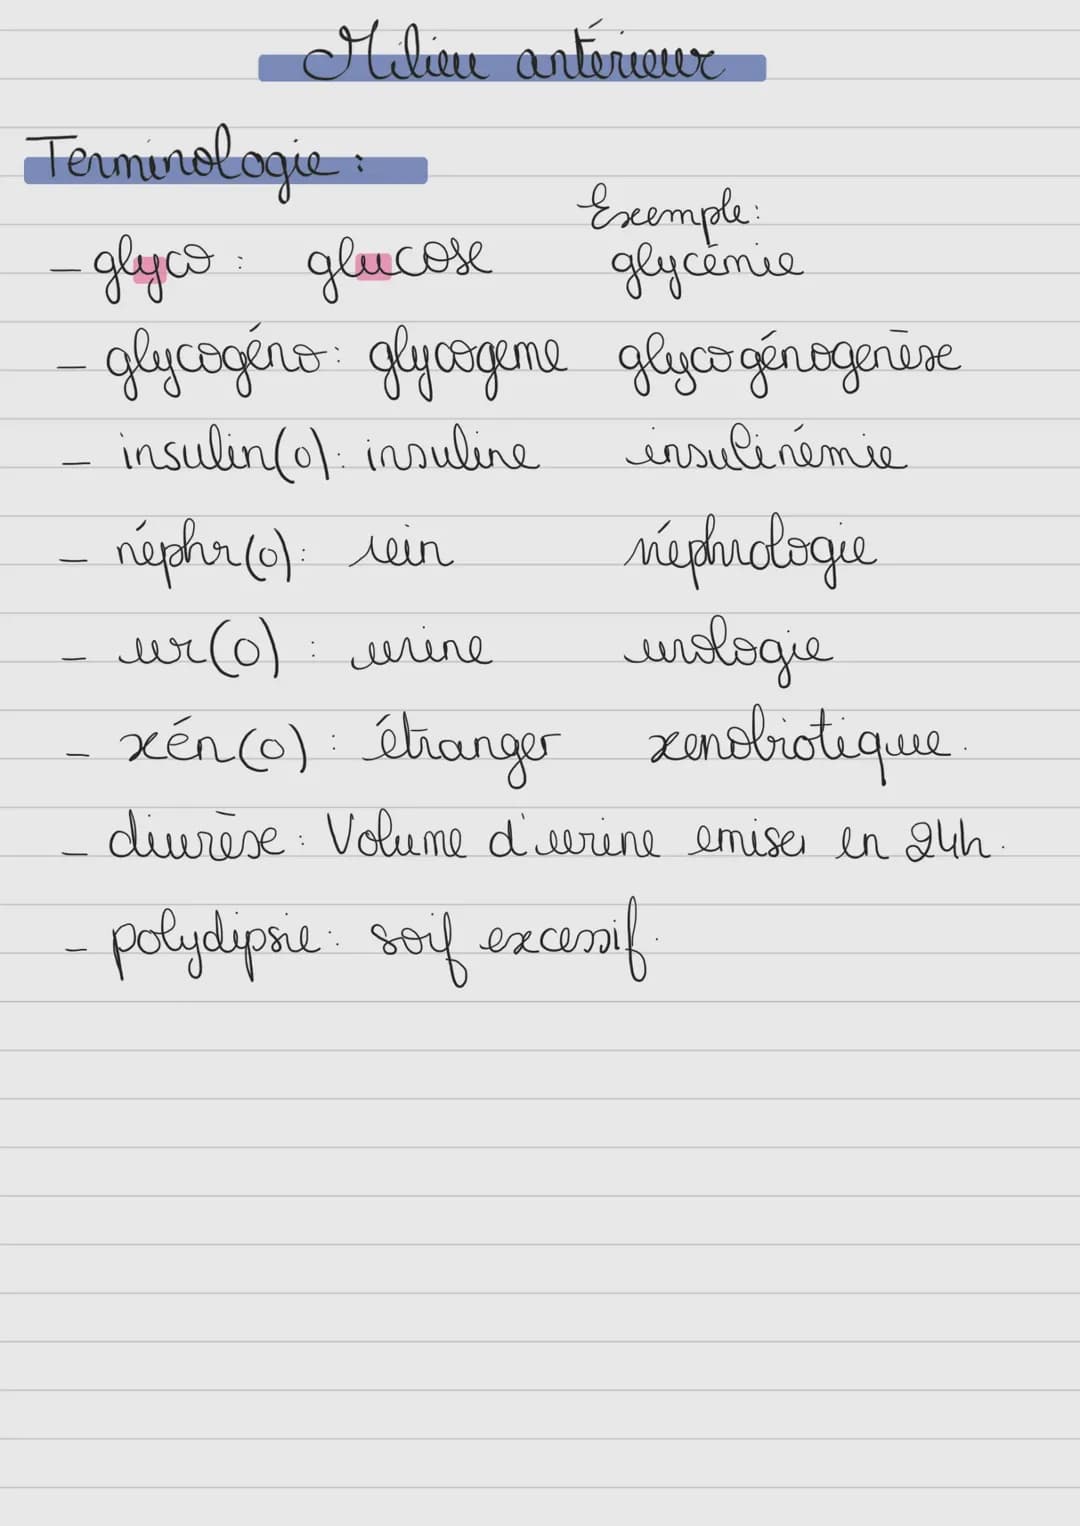 Milieu antérieur
Terminologie :
Exemple:
- glyco : glucose glycémie
- glycogéno: glycogeme glycogénogenèse
- insulin(o): insuline insulinémie
- néphr(o): rein néphrologie
- ur(o) : urine urologie
- xén(o) : étranger xenobiotique.
- diurèse: Volume d'urine emiser en 24h.
- polydipsie: soif excessif.